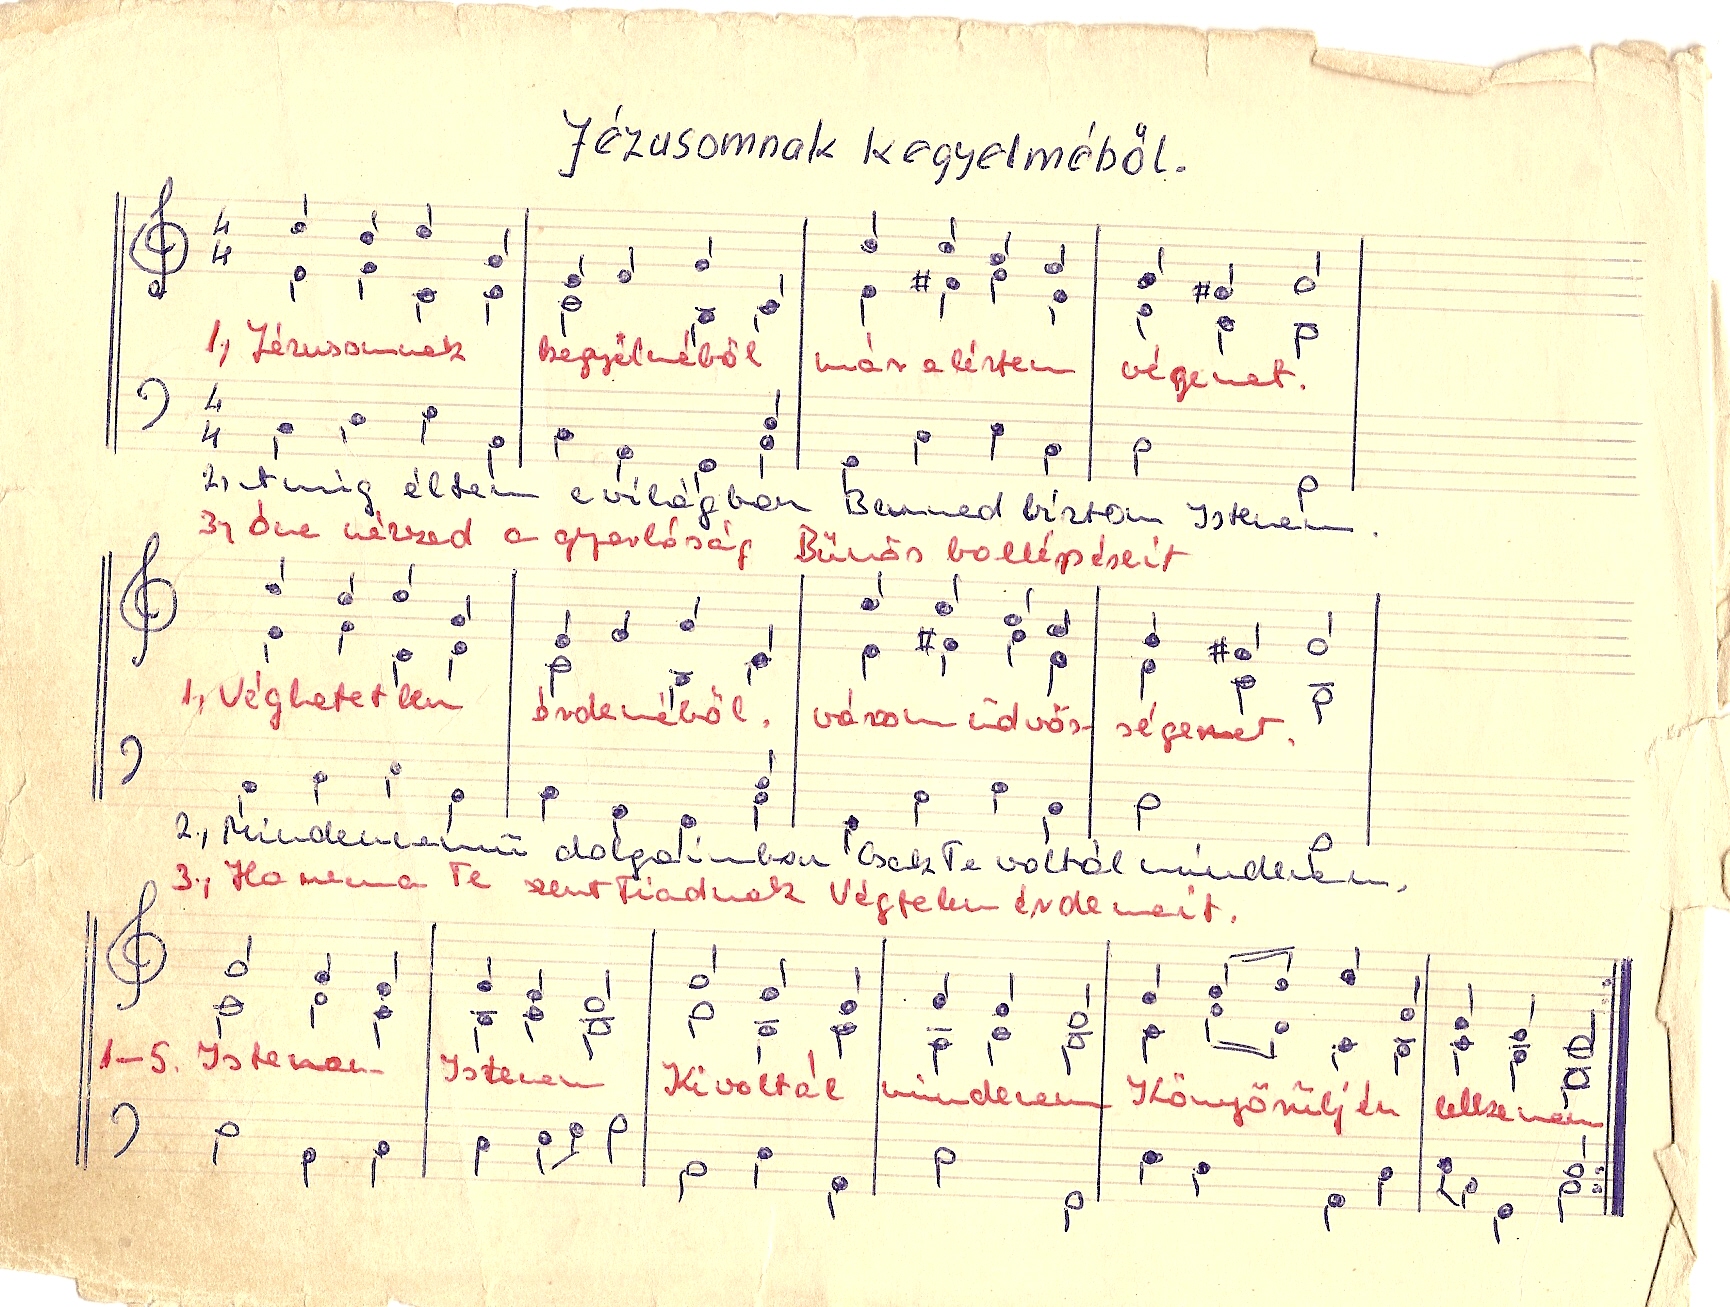 Jézusomnak kegyelméből.
4
4
1, Jézusomnak kegyelméből már elértem végemet.
4
4
2, Amig éltem e világban Benned biztam Istenem.
3, Óne nézzed a gyarlóság Bünös ballépéseit
1, Véghetetlen érdeméből. várom üdvös- ségemet.
2., Mindennemü dolgaimban Csak Te voltál mindenem.
3., Hanema Te szent Fiadnak Végtelen érdemeit.
1-5. Istenem Istenem Ki voltál mindenem Könyörülj én lelkemen